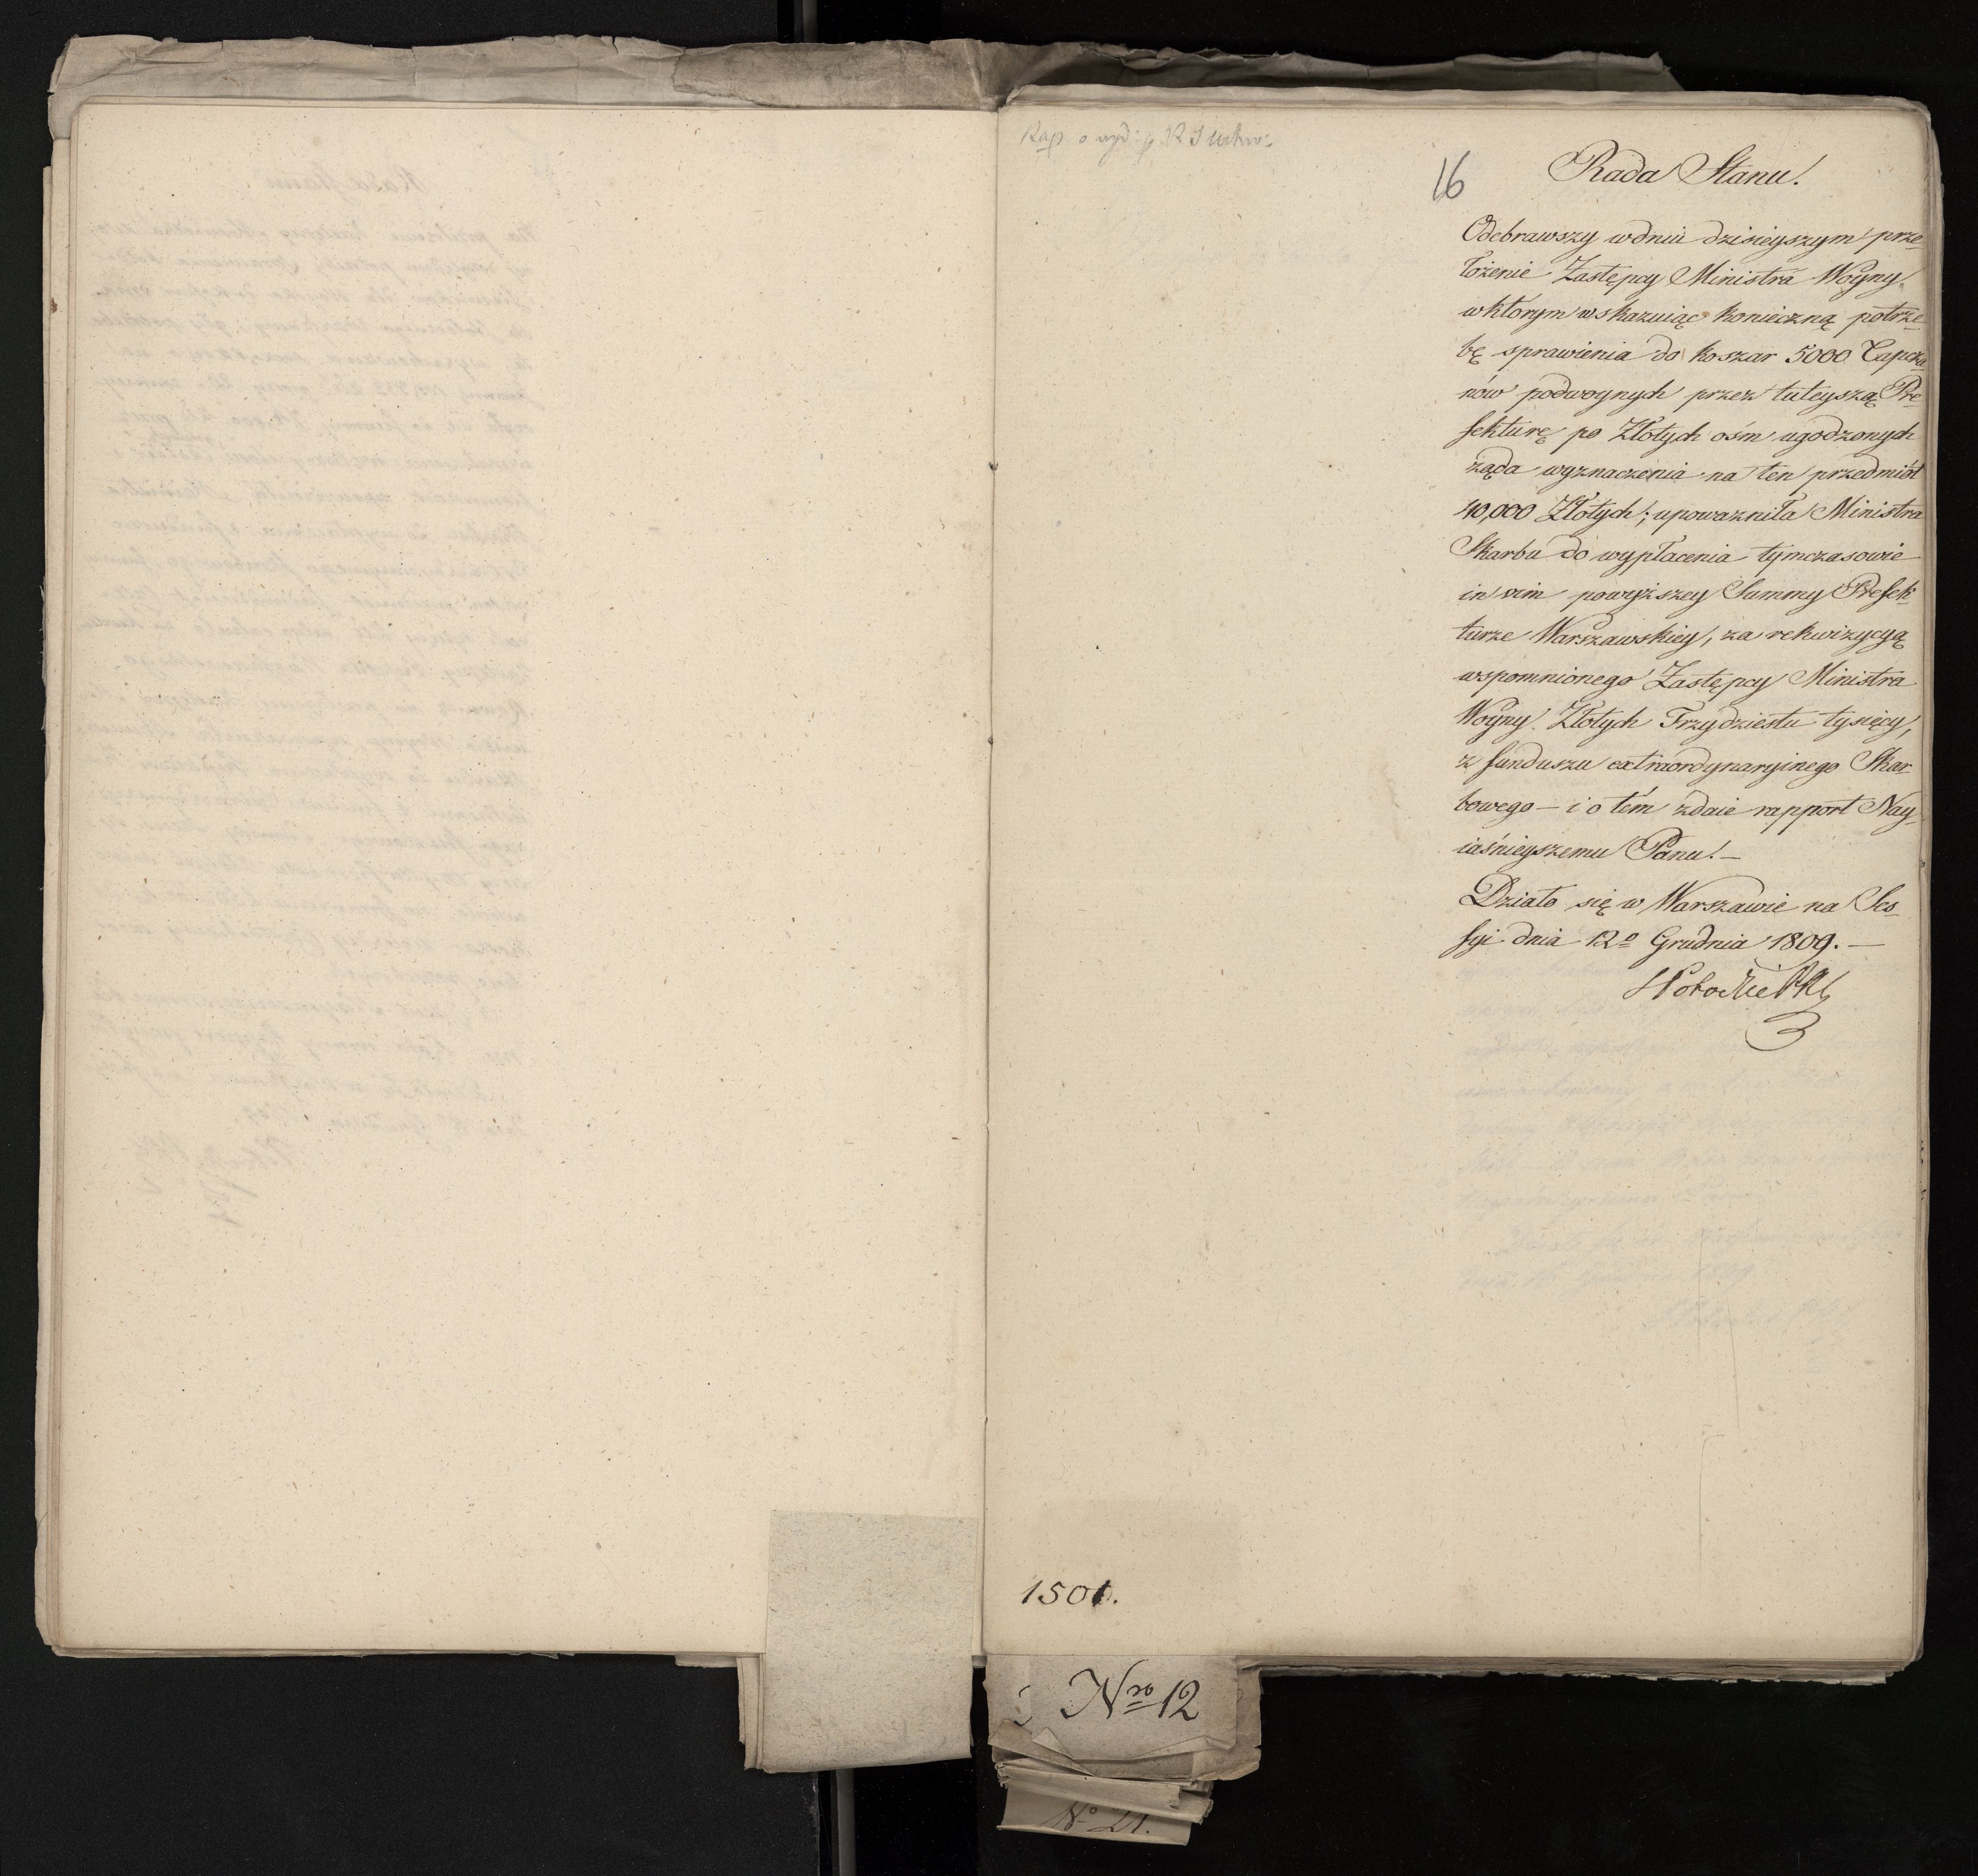 Rap o wyd: p R S
16
Rada Stanu.
Odebrawszy w dniu dzisieyszym prze-
łożenie Zastępcy Ministra Woyny,
w którym wskazuiąc konieczną potrze-
bę sprawienia do koszar 5000 Tapcza-
nów podwoynych przez tuteyszą Pre-
fekturę po Złotych ośm ugodzonych
żąda wyznaczenia na ten przedmiot
40,000 Złotych; upoważniła Ministra
Skarbu do wypłacenia tymczasowie
in vim powyższey Summy Prefek-
turze Warszawskiey, za rekwizycyą
wspomnionego Zastępcy Ministra
Woyny. Złotych Trzydziestu tysięcy,
z funduszu extraordynaryinego Skar-
bowego – i o tém zdaie rapport Nay-
iaśnieyszemu Panu! –
Działo się w Warszawie na Ses-
syi dnia 12º Grudnia 1809. –
1501.
Nro 12
Nº 21.